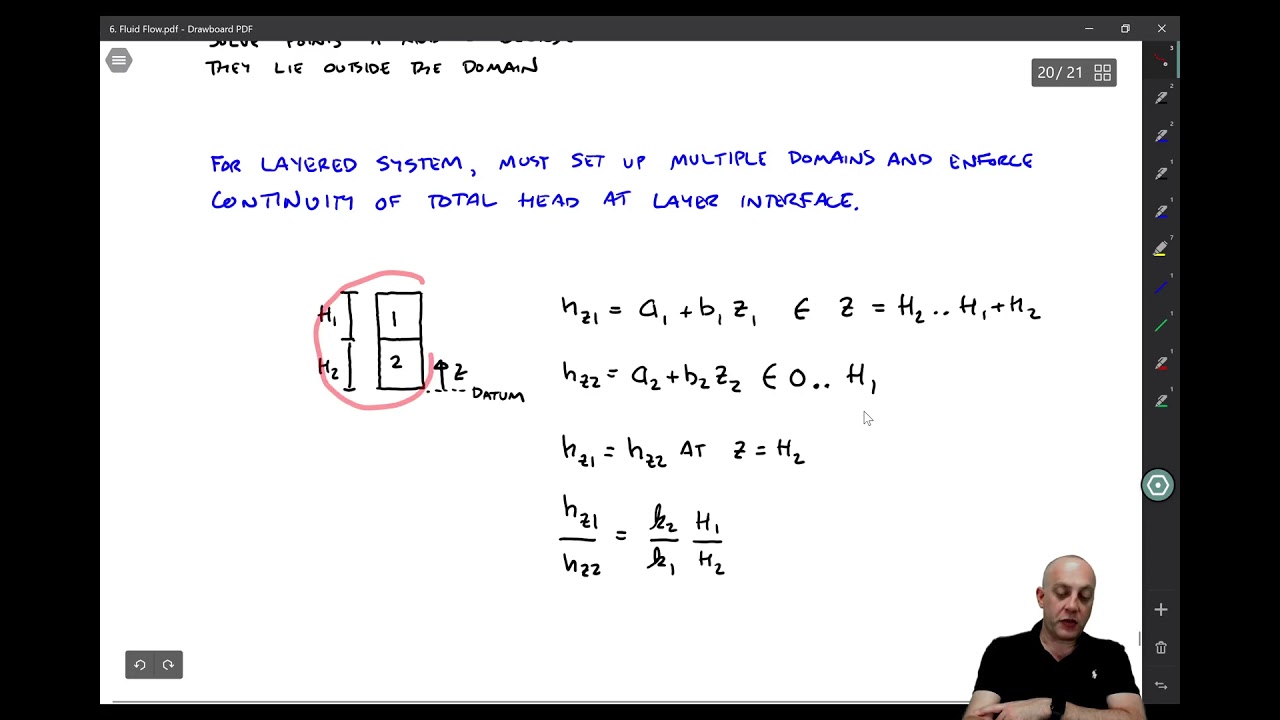 6. Fluid Flow.pdf - Drawboard PDF
20 / 21
THEY LIE OUTSIDE THE DOMAIN
FOR LAYERED SYSTEM, MUST SET UP MULTIPLE DOMAINS AND ENFORCE
CONTINUITY OF TOTAL HEAD AT LAYER INTERFACE.
H₁
1
H₂
2
Z
DATUM
h_z1 = a₁ + b₁ z₁ ∈ z = H₂ .. H₁ + H₂
h_z2 = a₂ + b₂ z₂ ∈ 0 .. H₁
h_z1 = h_z2 AT z = H₂
h_z1 / h_z2 = k₂ / k₁ H₁ / H₂